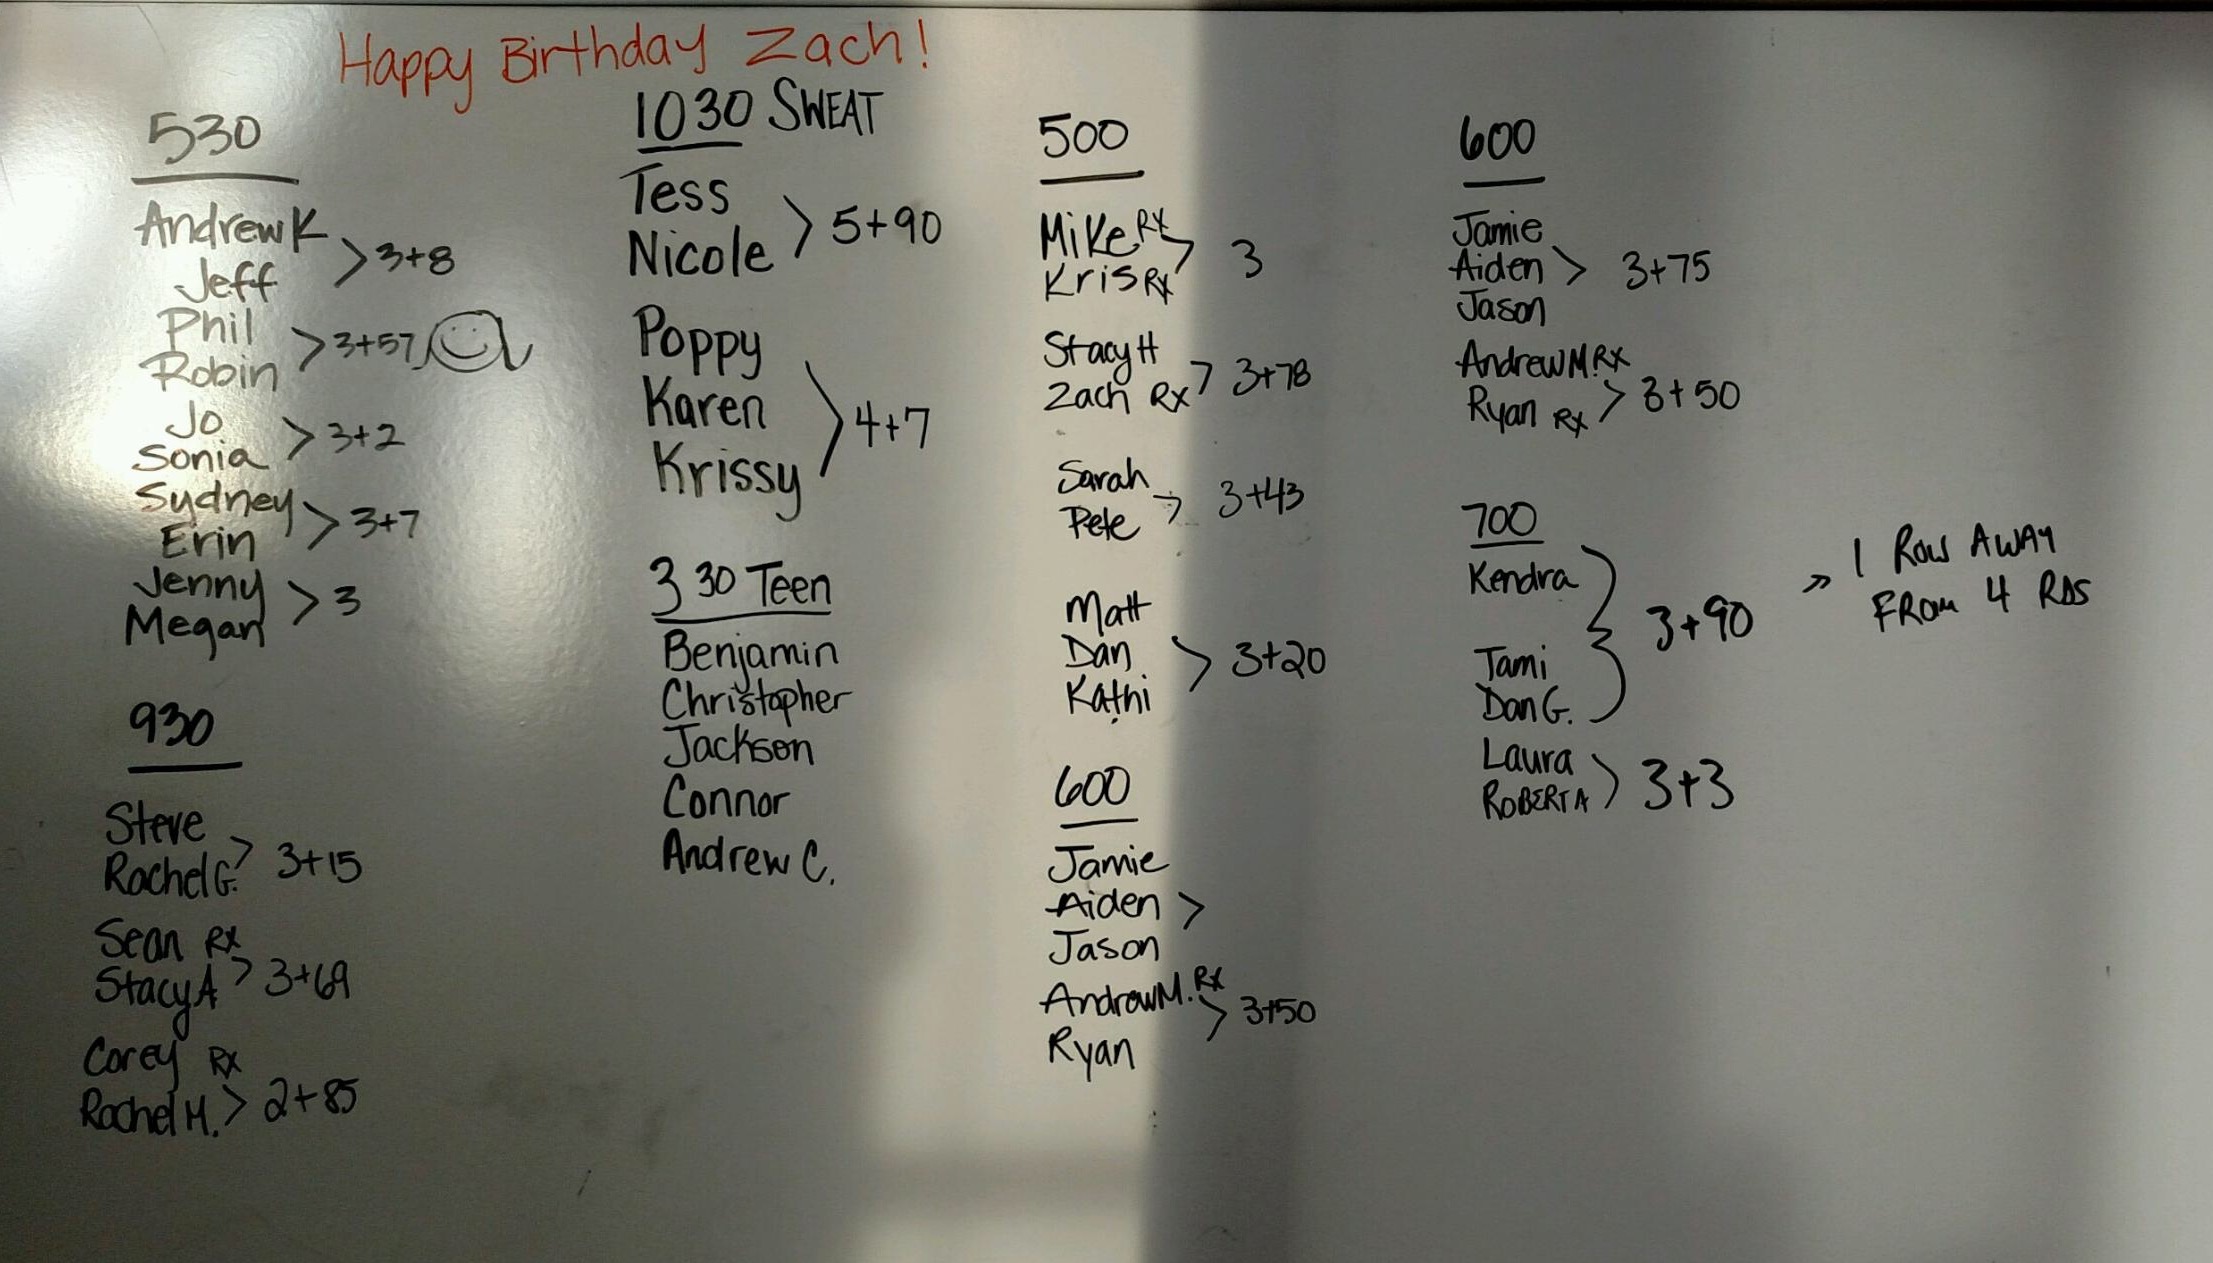 Happy Birthday Zach!
530
Andrew K
Jeff
3+8
Phil
Robin
3+57
Jo
Sonia
3+2
Sydney
Erin
3+7
Jenny
Megan
3
930
Steve
Rachel G.
3+15
Sean RX
Stacy A
3+69
Corey RX
Rachel M.
2+85
1030 SWEAT
Tess
Nicole
5+90
Poppy
Karen
Krissy
4+7
3 30 Teen
Benjamin
Christopher
Jackson
Connor
Andrew C.
500
Mike RX
Kris RX
3
Stacy H
Zach RX
3+78
Sarah
Pete
3+43
Matt
Dan
Kathi
3+20
600
Jamie
Aiden
Jason
Andrew M. RX
Ryan
3+50
600
Jamie
Aiden
Jason
3+75
Andrew M. RX
Ryan RX
3+50
700
Kendra
Tami
Dan G.
3+90
» 1 ROW AWAY
FROM 4 RDS
Laura
ROBERTA
3+3